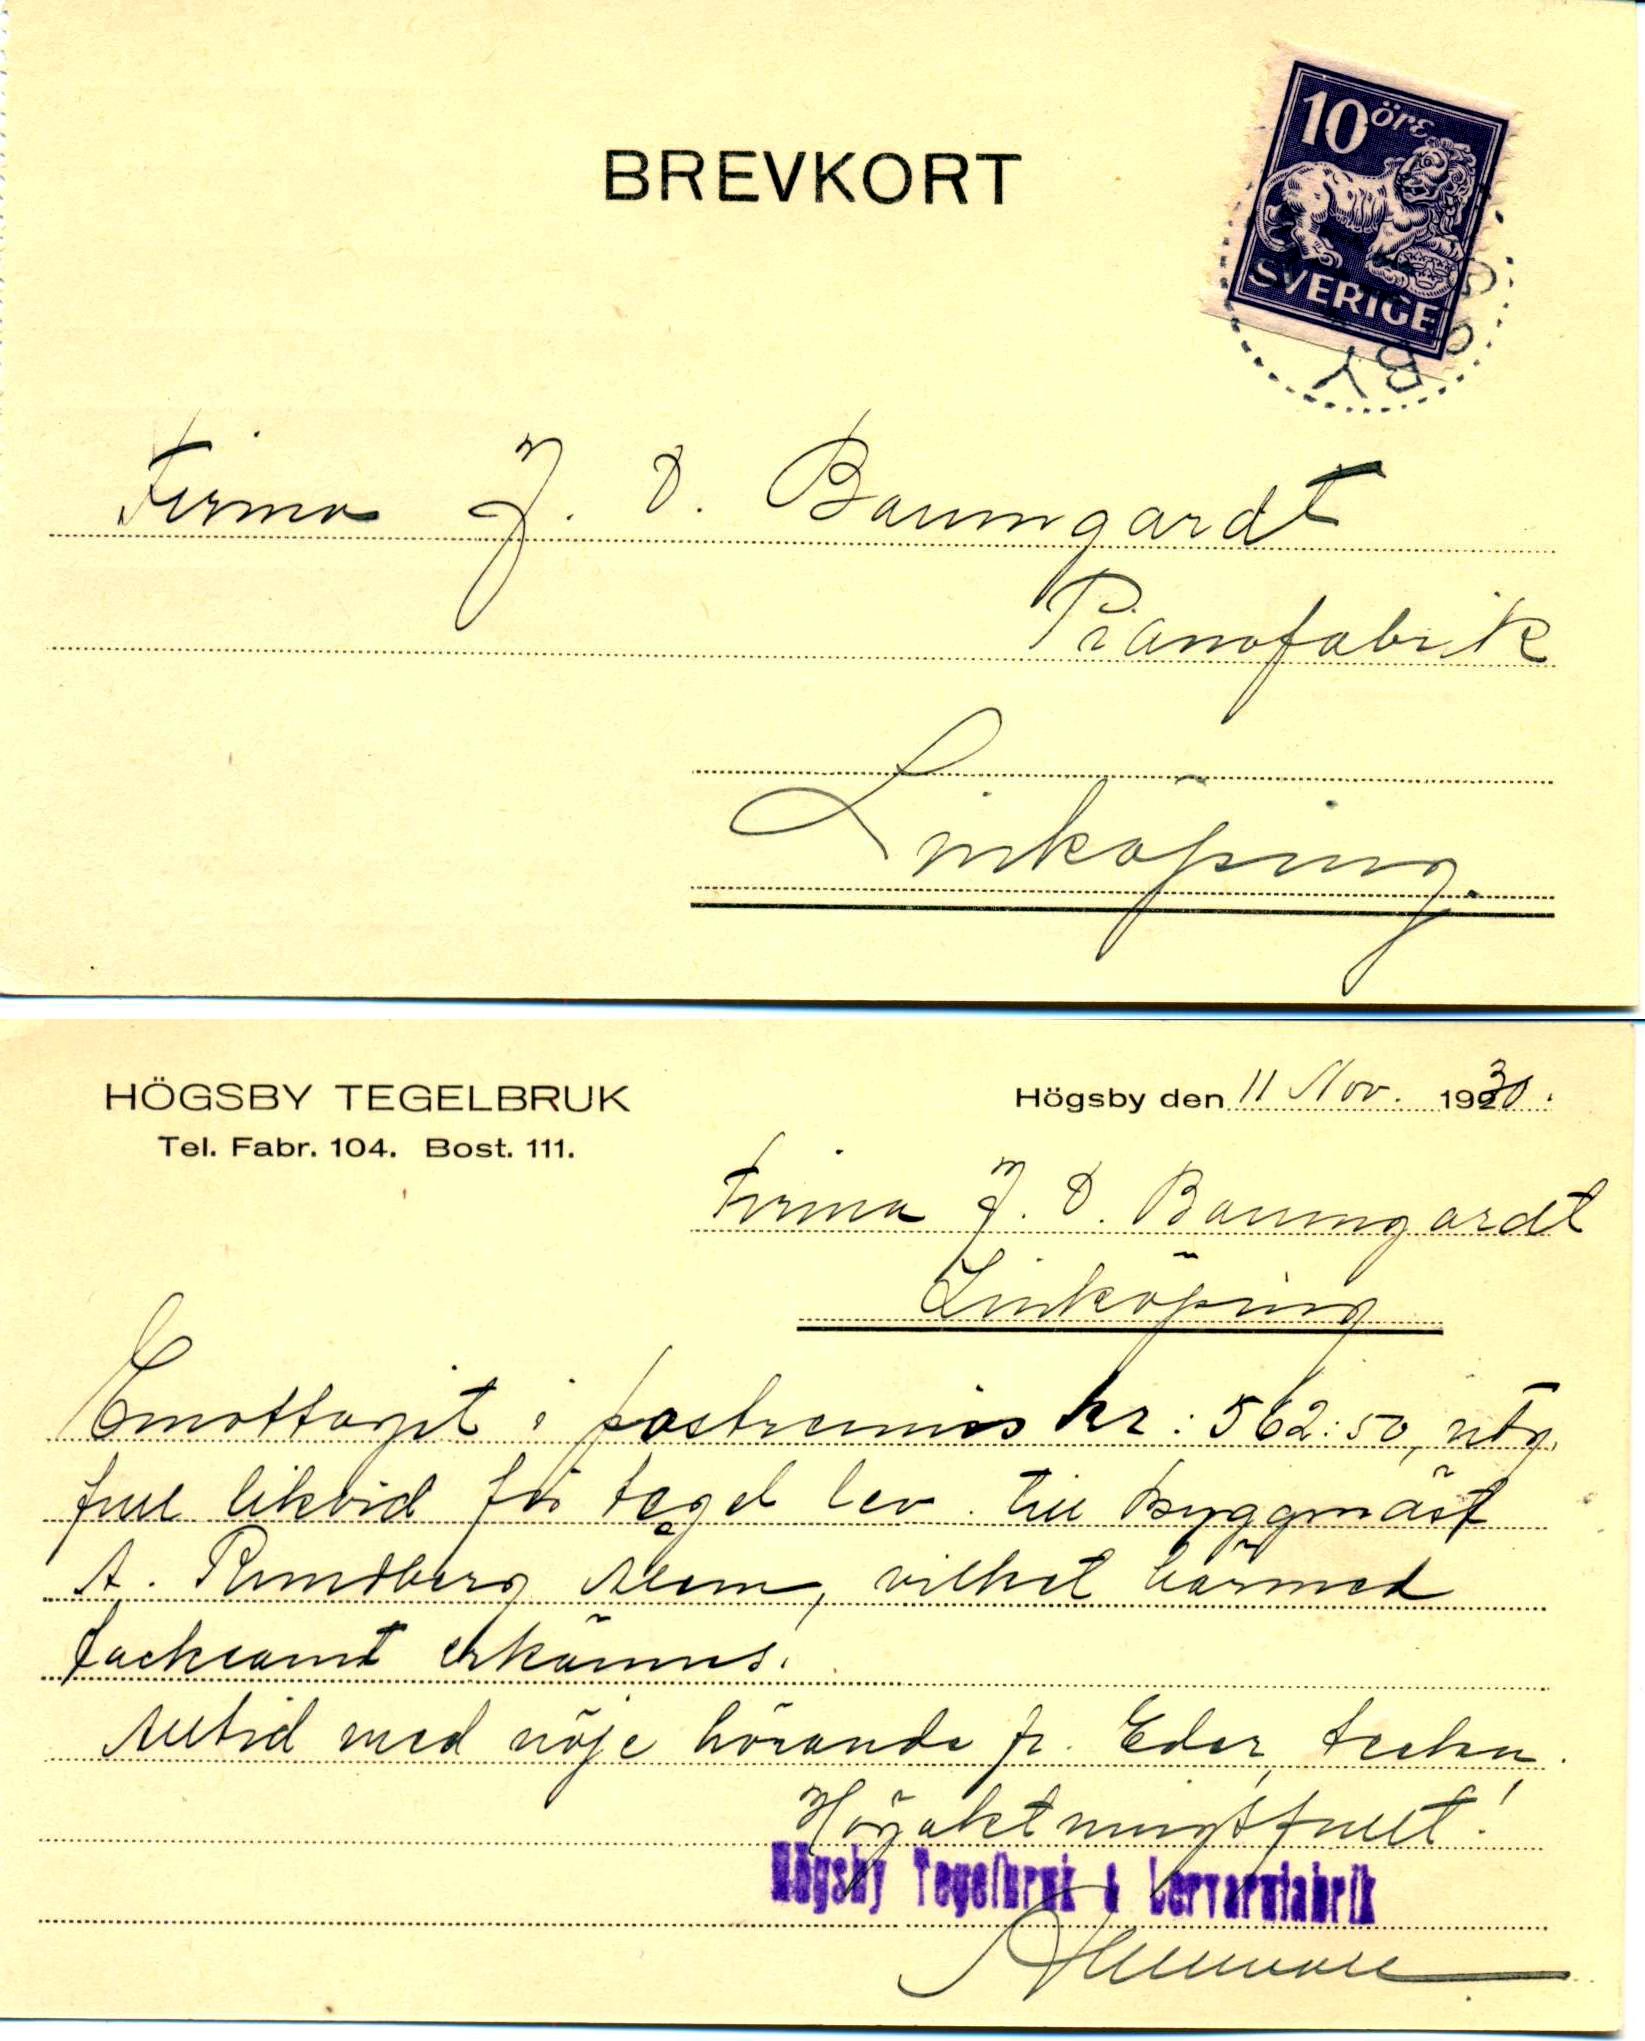 BREVKORT
10 öre
SVERIGE
SBY
Firma J. D. Baumgardt
Pianofabrik
Linköping.
HÖGSBY TEGELBRUK
Tel. Fabr. 104. Bost. 111.
Högsby den 11 Nov. 1930.
Firma J. D. Baumgardt
Linköping
Emottagit i postremiss kr: 562:50, utg.
full likvid för tegel lev. till byggmäst
A. Rundberg Ålem, vilket härmed
tacksamt erkännes.
Alltid med nöje hörande fr. Eder, teckn.
Högaktningsfullt!
Högsby Tegelbruk & Lervarufabrik